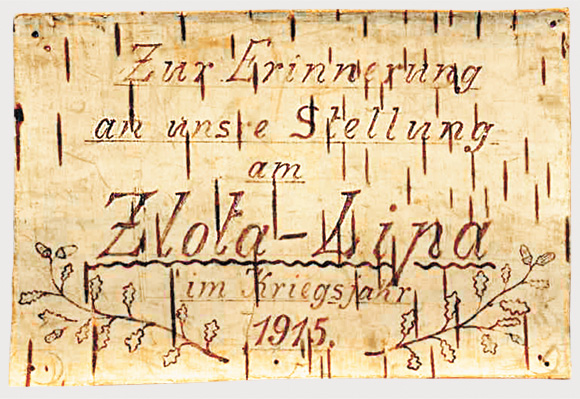 Zur Erinnerung
an unsre Stellung
am
Zlota-Lipa
im Kriegsjahr
1915.